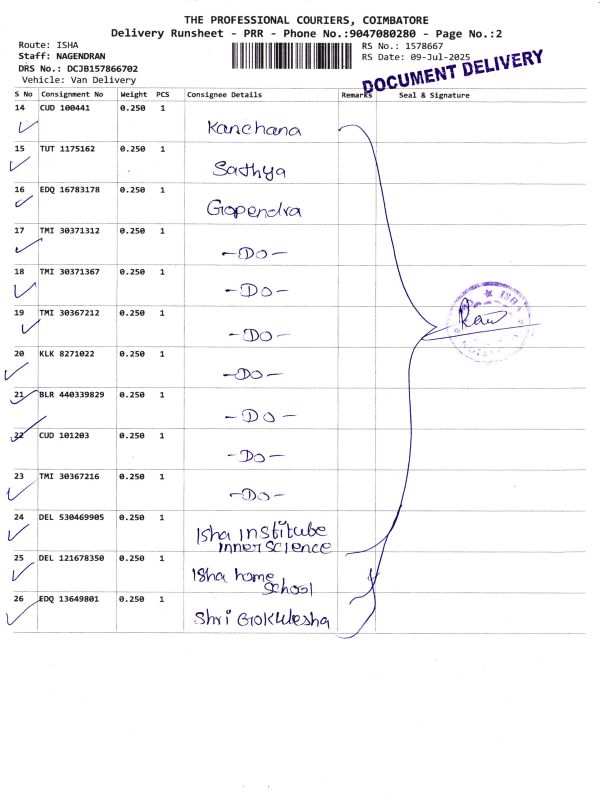 THE PROFESSIONAL COURIERS, COIMBATORE
Delivery Runsheet - PRR - Phone No.:9047080280 - Page No.:2
Route: ISHA
RS No.: 1578667
Staff: NAGENDRAN
RS Date: 09-Jul-2025
DRS No.: DCJB157866702
DOCUMENT DELIVERY
Vehicle: Van Delivery
S No Consignment No Weight PCS Consignee Details Remarks Seal & Signature
14 CUD 100441 0.250 1
Kanchana
15 TUT 1175162 0.250 1
Sathya
16 EDQ 16783178 0.250 1
Gopendra
17 TMI 30371312 0.250 1
-Do-
18 TMI 30371367 0.250 1
-Do-
19 TMI 30367212 0.250 1
-Do-
20 KLK 8271022 0.250 1
-Do-
21 BLR 440339829 0.250 1
-Do-
22 CUD 101203 0.250 1
-Do-
23 TMI 30367216 0.250 1
-Do-
24 DEL 530469905 0.250 1
Isha institube
inner science
25 DEL 121678350 0.250 1
Isha home
school
26 EDQ 13649801 0.250 1
Shri Gokulesha
ISHA